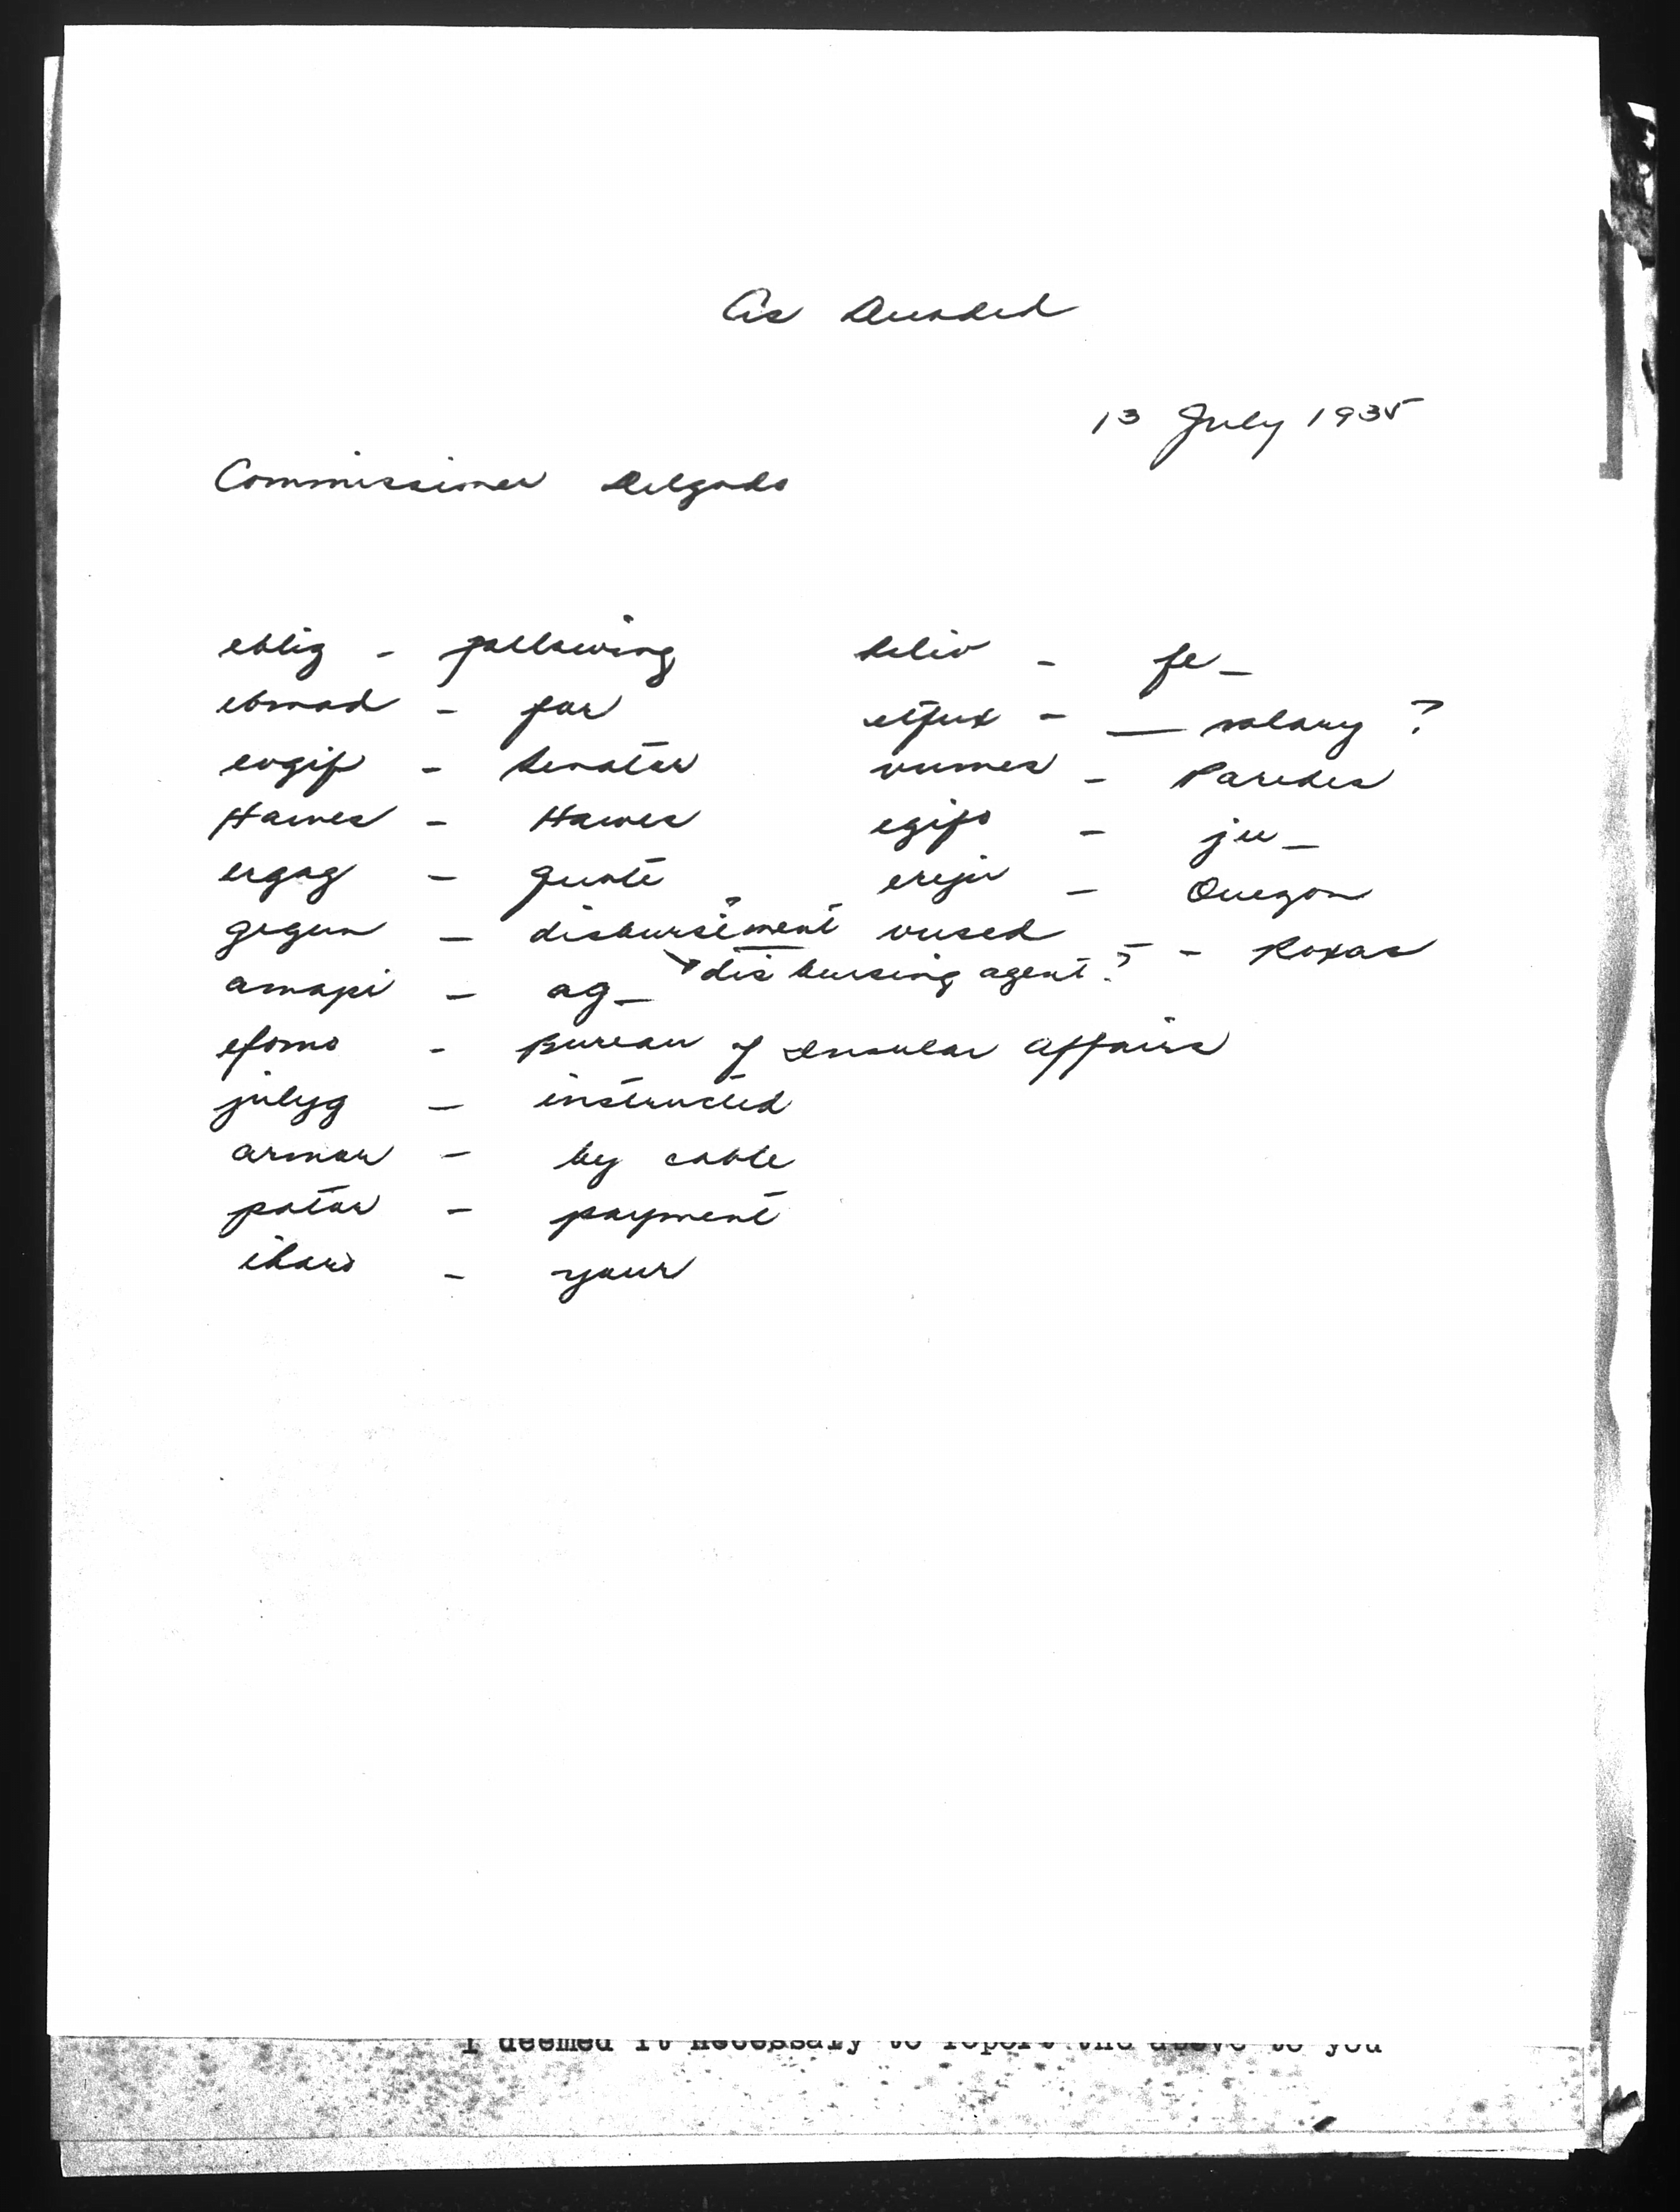 As Decoded
13 July 1935
Commissioner Delgado
eblig - following
ebmad - for
evgif - Senator
Hawes - Hawes
ergag - quote
gegun - disbursement ?
disbursing agent ?
amapi - ag_
efomo - Bureau of Insular Affairs
julyg - instructed
armar - by cable
patar - payment
iharo - your
- fe_
etfux - __ salary ?
vumes - Paredes
egifo - ju_
ereju - Quezon
vused - Roxas
I deemed it necessary to report the above to you